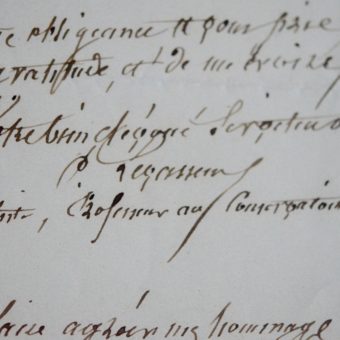 obligeance et pour prie
gratitude, et de me croire
Votre bien dévoué Serviteur
P Levasseur
Professeur au Conservatoire
agréer mes hommages